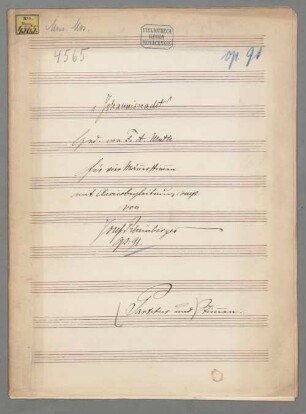 Mus. Mss.
4565
BIBLIOTHECA
REGIA
MONACENSIS
op 91
„Johannisnacht“
Ged. von F. A. Muth
für vier Männerstimmen
mit Clavierbegleitung comp.
von
Josef Rheinberger
op. 91.
(Partitur und Stimmen.)